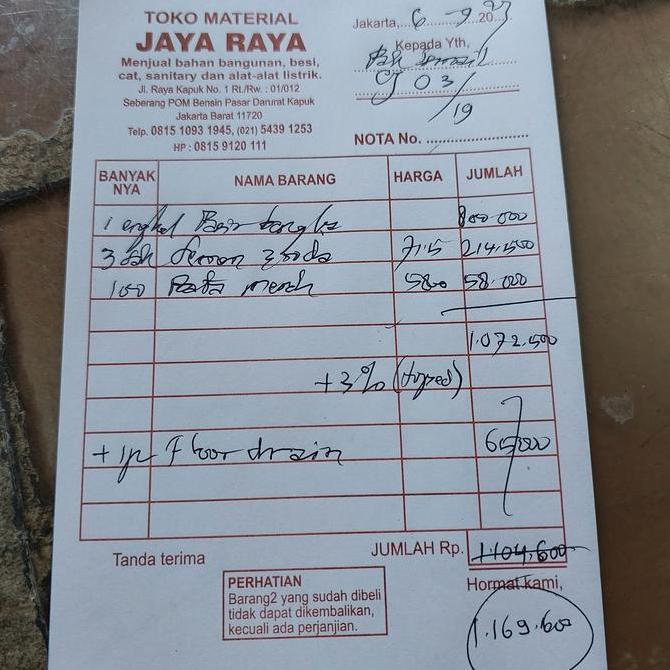 TOKO MATERIAL
JAYA RAYA
Menjual bahan bangunan, besi,
cat, sanitary dan alat-alat listrik.
Jl. Raya Kapuk No. 1 Rt./Rw. : 01/012
Seberang POM Bensin Pasar Darurat Kapuk
Jakarta Barat 11720
Telp. 0815 1093 1945, (021) 5439 1253
HP : 0815 9120 111
Jakarta, 6 - 9 20
Kepada Yth,
03
/19
NOTA No.
BANYAK NYA NAMA BARANG HARGA JUMLAH
1 engkel 800.000
3 Semen 71.5 214.500
100 Bata merah 580 58.000
1.072.500
+3%
+ 1 Floor drain 65.000
JUMLAH Rp. 1104.600
Tanda terima
Hormat kami,
1.169.600
PERHATIAN
Barang2 yang sudah dibeli
tidak dapat dikembalikan,
kecuali ada perjanjian.